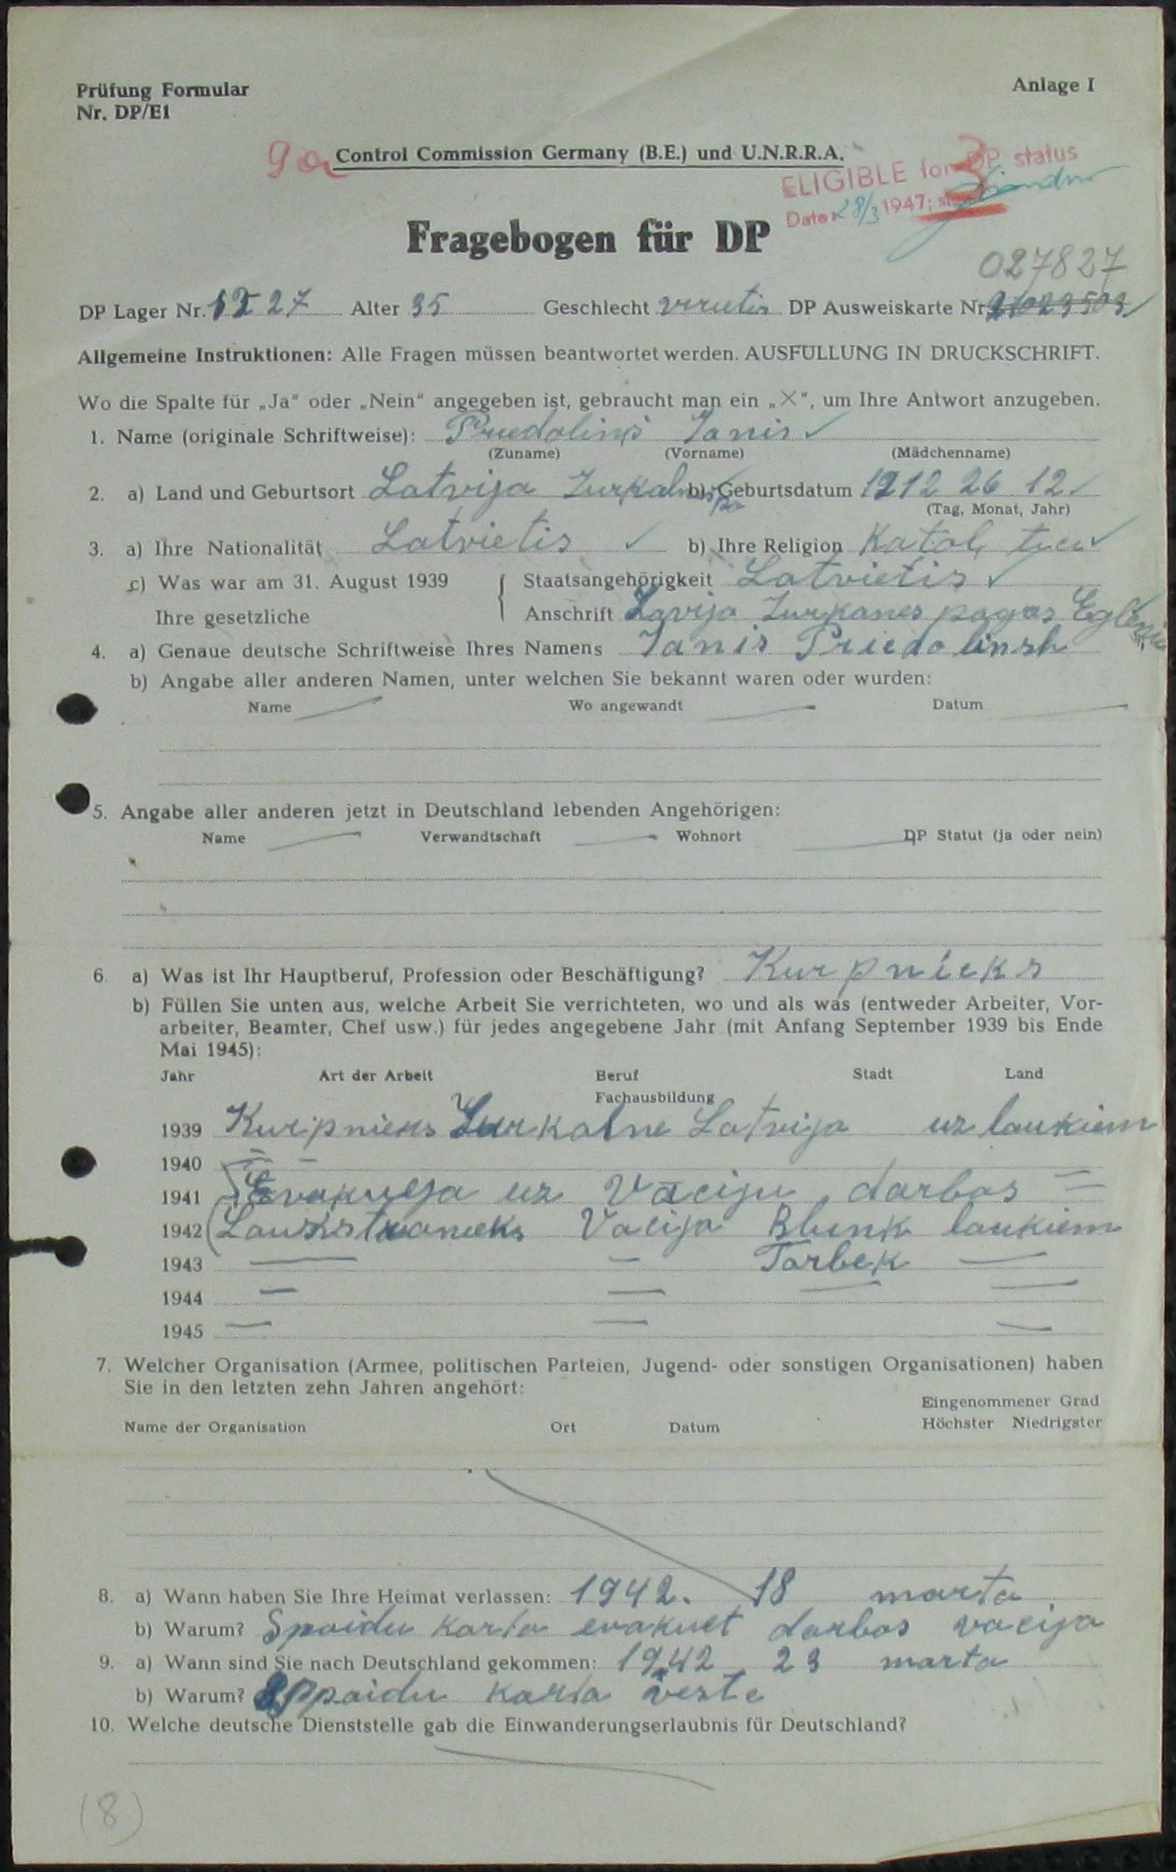 Prüfung Formular
Nr. DP/E1
Anlage I
9a
Control Commission Germany (B.E.) und U.N.R.R.A.
ELIGIBLE for DP status
3
Date 28/3 1947;
Fragebogen für DP
027827
DP Lager Nr. 1227 Alter 35 Geschlecht DP Ausweiskarte Nr.
Allgemeine Instruktionen: Alle Fragen müssen beantwortet werden. AUSFÜLLUNG IN DRUCKSCHRIFT.
Wo die Spalte für „Ja“ oder „Nein“ angegeben ist, gebraucht man ein „X“, um Ihre Antwort anzugeben.
1. Name (originale Schriftweise): Priedoliņš Janis
(Zuname) (Vorname) (Mädchenname)
2. a) Land und Geburtsort Latvija b) Geburtsdatum 1912 26 12
(Tag, Monat, Jahr)
3. a) Ihre Nationalität Latvietis b) Ihre Religion Katoļ ticu
c) Was war am 31. August 1939 Staatsangehörigkeit Latvietis
Ihre gesetzliche Anschrift pagas
4. a) Genaue deutsche Schriftweise Ihres Namens Janis Priedolinsh
b) Angabe aller anderen Namen, unter welchen Sie bekannt waren oder wurden:
Name Wo angewandt Datum
5. Angabe aller anderen jetzt in Deutschland lebenden Angehörigen:
Name Verwandtschaft Wohnort DP Statut (ja oder nein)
6. a) Was ist Ihr Hauptberuf, Profession oder Beschäftigung? Kurpnieks
b) Füllen Sie unten aus, welche Arbeit Sie verrichteten, wo und als was (entweder Arbeiter, Vor-
arbeiter, Beamter, Chef usw.) für jedes angegebene Jahr (mit Anfang September 1939 bis Ende
Mai 1945):
Jahr Art der Arbeit Beruf Stadt Land
Fachausbildung
1939 Kurpnieks Latvija uz laukiem
1940
1941 uz Vaciju, darbos
1942 Vacija Blunk laukiem
1943 — — Tarbek —
1944 — — — —
1945 — — —
7. Welcher Organisation (Armee, politischen Parteien, Jugend- oder sonstigen Organisationen) haben
Sie in den letzten zehn Jahren angehört:
Eingenommener Grad
Name der Organisation Ort Datum Höchster Niedrigster
8. a) Wann haben Sie Ihre Heimat verlassen: 1942. 18 marta
b) Warum? Spaidu karta evakuet darbos vacija
9. a) Wann sind Sie nach Deutschland gekommen: 1942 23 marta
b) Warum? Spaidu karta veste
10. Welche deutsche Dienststelle gab die Einwanderungserlaubnis für Deutschland?
(8)